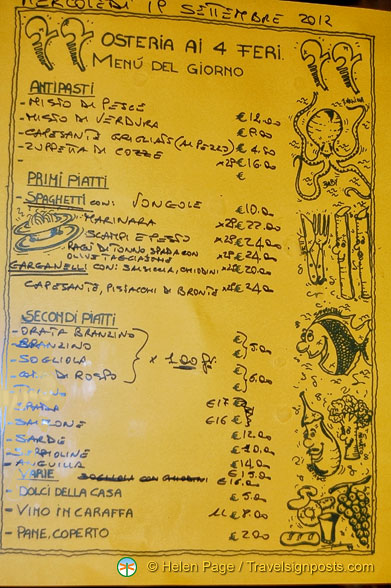 MERCOLEDÌ 19 SETTEMBRE 2012
OSTERIA AI 4 FERI.
MENÚ DEL GIORNO
ANTIPASTI
- MISTO DI PESCE €12.00
- MISTO DI VERDURA €8.00
- CAPESANTE GRIGLIATE (AL PEZZO) € 4.50
- ZUPPETTA DI COZZE x2P €16.00
- €
PRIMI PIATTI
- SPAGHETTI CON: VONGOLE €10.00
MARINARA x2P €22.00
SCAMPI E PESTO x2P €24.00
RAGÙ DI TONNO SPADA CON x2P €24.00
OLIVE TAGGIASCHE
GARGANELLI CON: SALSICCIA, CHIODINI x2P €20.00
CAPESANTE, PISTACCHI DI BRONTE x2P €24.00
SECONDI PIATTI
- ORATA BRANZINO €
- BRANZINO € 5.00
- SOGLIOLA x 100 gr. €
- CODA DI ROSPO € 6.00
- TONNO €
- SPADA €17
- SALMONE €16
- SARDE €12.00
€10.00
- ANGUILLA €14.00
VARIE €15.00
SOGLIOLA CON €16.00
- DOLCI DELLA CASA €5.00
- VINO IN CARAFFA 1L €8.00
- PANE, COPERTO €2.00
© Helen Page / Travelsignposts.com